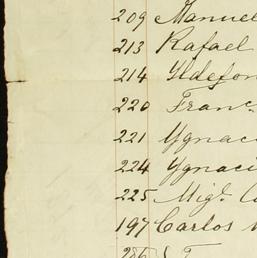 209 Manuel
213 Rafael
214 Yldefon
220 Franc.
221 Ygnaci
224 Ygnaci
225 Migl. C
197 Carlos